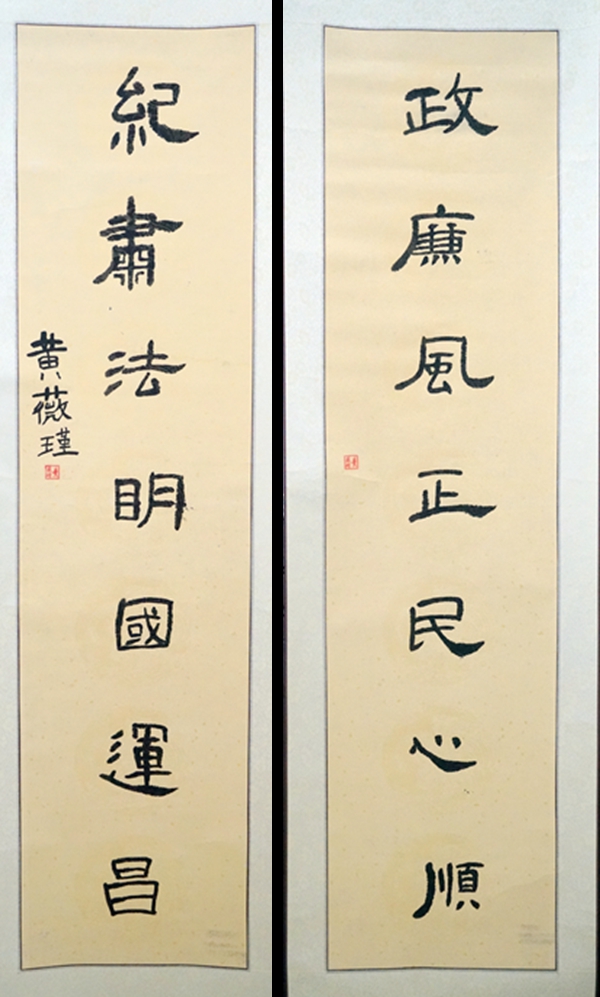 政廉風正民心順
紀肅法明國運昌
黄薇瑾